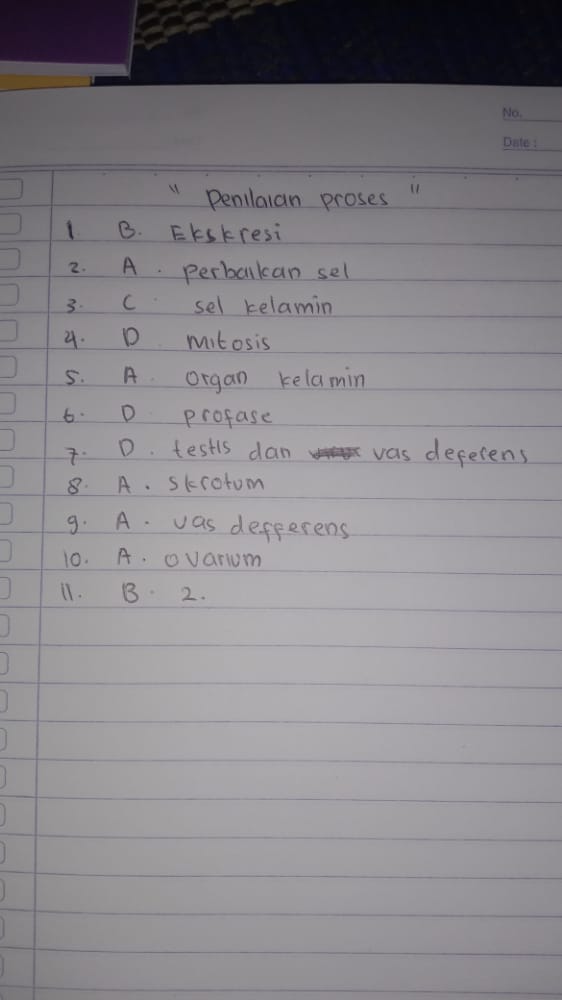 No.
Date :
" Penilaian proses "
1. B. Ekskresi
2. A. perbaikan sel
3. C. sel kelamin
4. D. mitosis
5. A. organ kelamin
6. D. profase
7. D. testis dan vas deferens
8. A. skrotum
9. A. vas defferens
10. A. ovarium
11. B. 2.